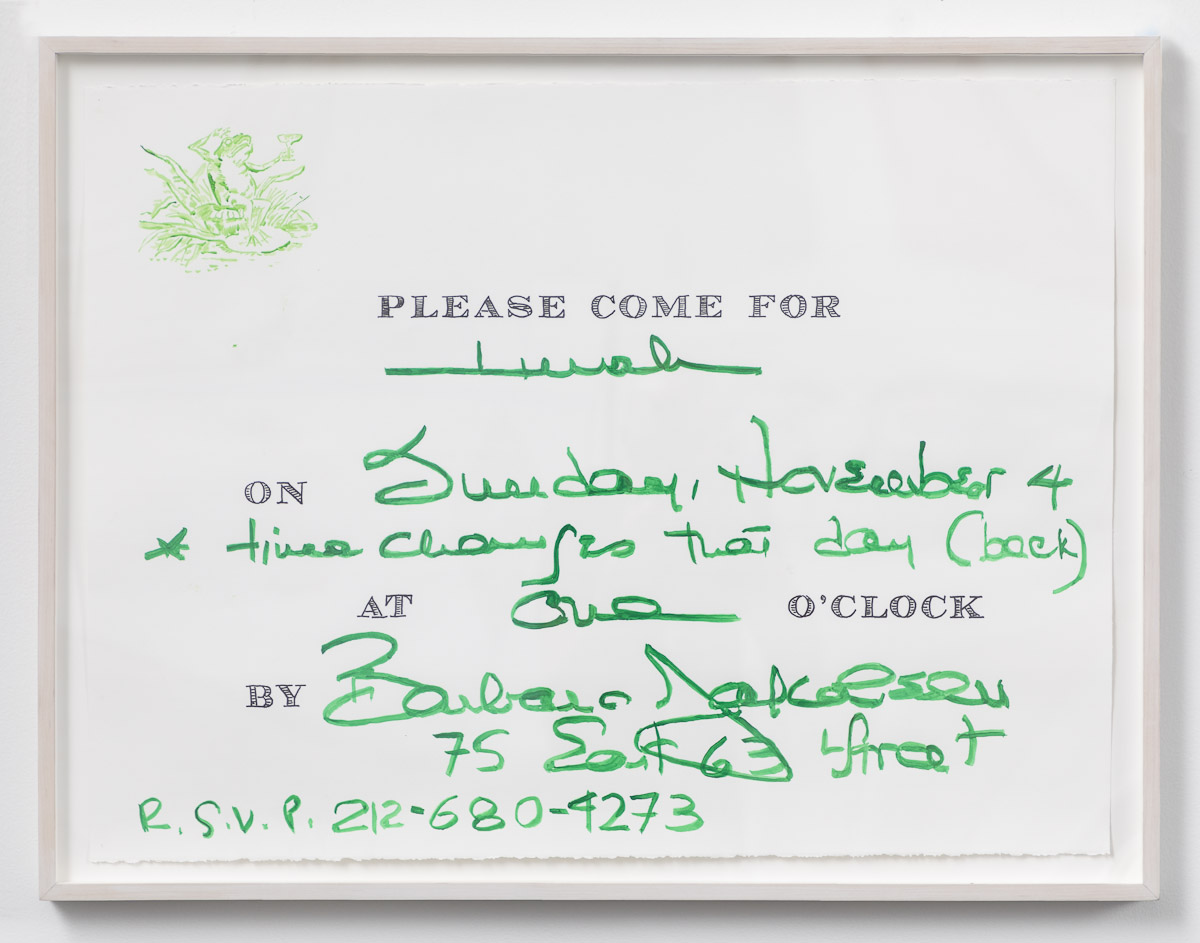 PLEASE COME FOR
Lunch
ON Sunday, November 4
* time changes that day (back)
AT One O'CLOCK
BY Barbara Jakobson
75 East 63 Street
R.S.V.P. 212-680-4273